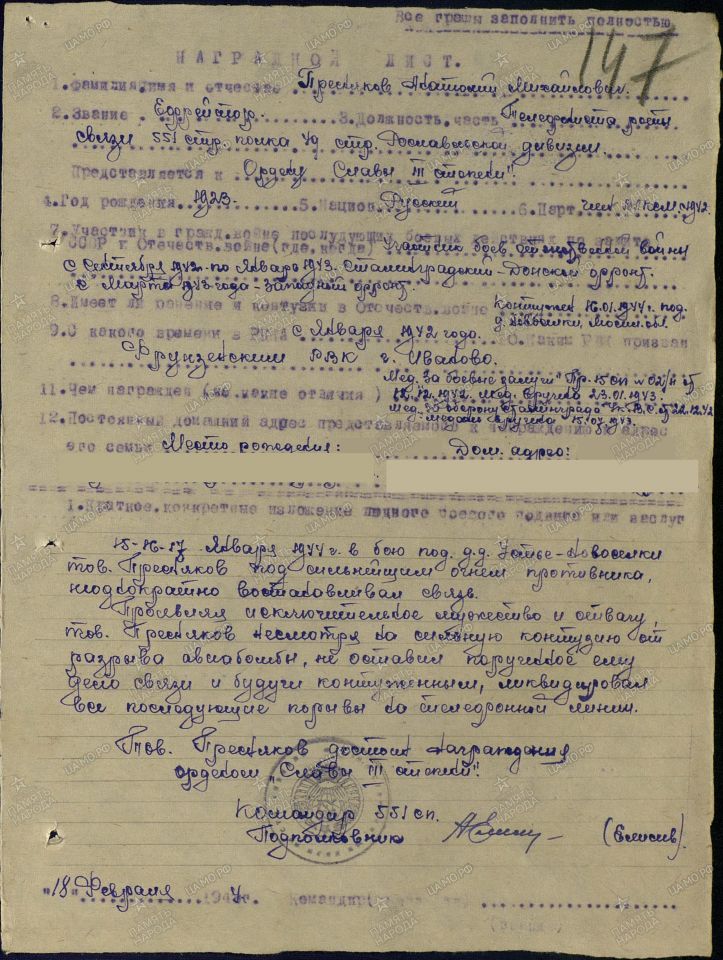 Все графы заполнить полностью
147
НАГРАДНОЙ ЛИСТ.
1. Фамилия, имя и отчество Пресняков Анатолий Михайлович.
2. Звание Ефрейтор. 3. Должность, часть Телефониста роты
связи 551 стр. полка 49 стр. Рославльской дивизии.
Представляется к Ордену Славы III степени"
4. Год рождения 1923. 5. Национ. Русский 6. Парт. член ВЛКСМ 1942.
7. Участник в гражд. войне последующих боевых действиях по защите
СССР и Отечеств. войне (где, когда) Участник боев отечественной войны
с Сентября 1942 по Январь 1943. Сталинградский - Донской фронт.
С Марта 1943 года - Западный фронт.
8. Имеет ли ранение и контузии в Отечеств. войне Контужен 16.01.1944 г. под
9. С какого времени в РККА с Января 1942 года. 10. Каким РВК призван
Фрунзенским РВК г. Иваново.
11. Чем награжден (за какие отличия) Мед. За боевые заслуги" Пр. 15 СП № 02/н от
12.12.1942. Мед. вручена 23.01.1943.
Мед. За оборону Сталинграда" Ук. П.В.С. от 22.12.1942
Медаль вручена 15.07.1943.
12. Постоянный домашний адрес представляемого к награждению и адрес
его семьи Место рождения: Дом. адрес:
1. Краткое, конкретные изложение личного боевого подвига или заслуг
15-16-17 Января 1944 г. в бою под д.д. Устье-Новоселки
тов. Пресняков под сильнейшим огнем противника,
неоднократно восстанавливал связь.
Проявляя исключительное мужество и отвагу,
тов. Пресняков несмотря на сильную контузию от
разрыва авиабомбы, не оставил порученное ему
дело связи и будучи контуженным, ликвидировал
все последующие порывы на телефонной линии.
Тов. Пресняков достоин награждения
орденом „Славы III степени".
Командир 551 сп.
Подполковник (Елисеев).
"18" Февраля 1944 г. Командир